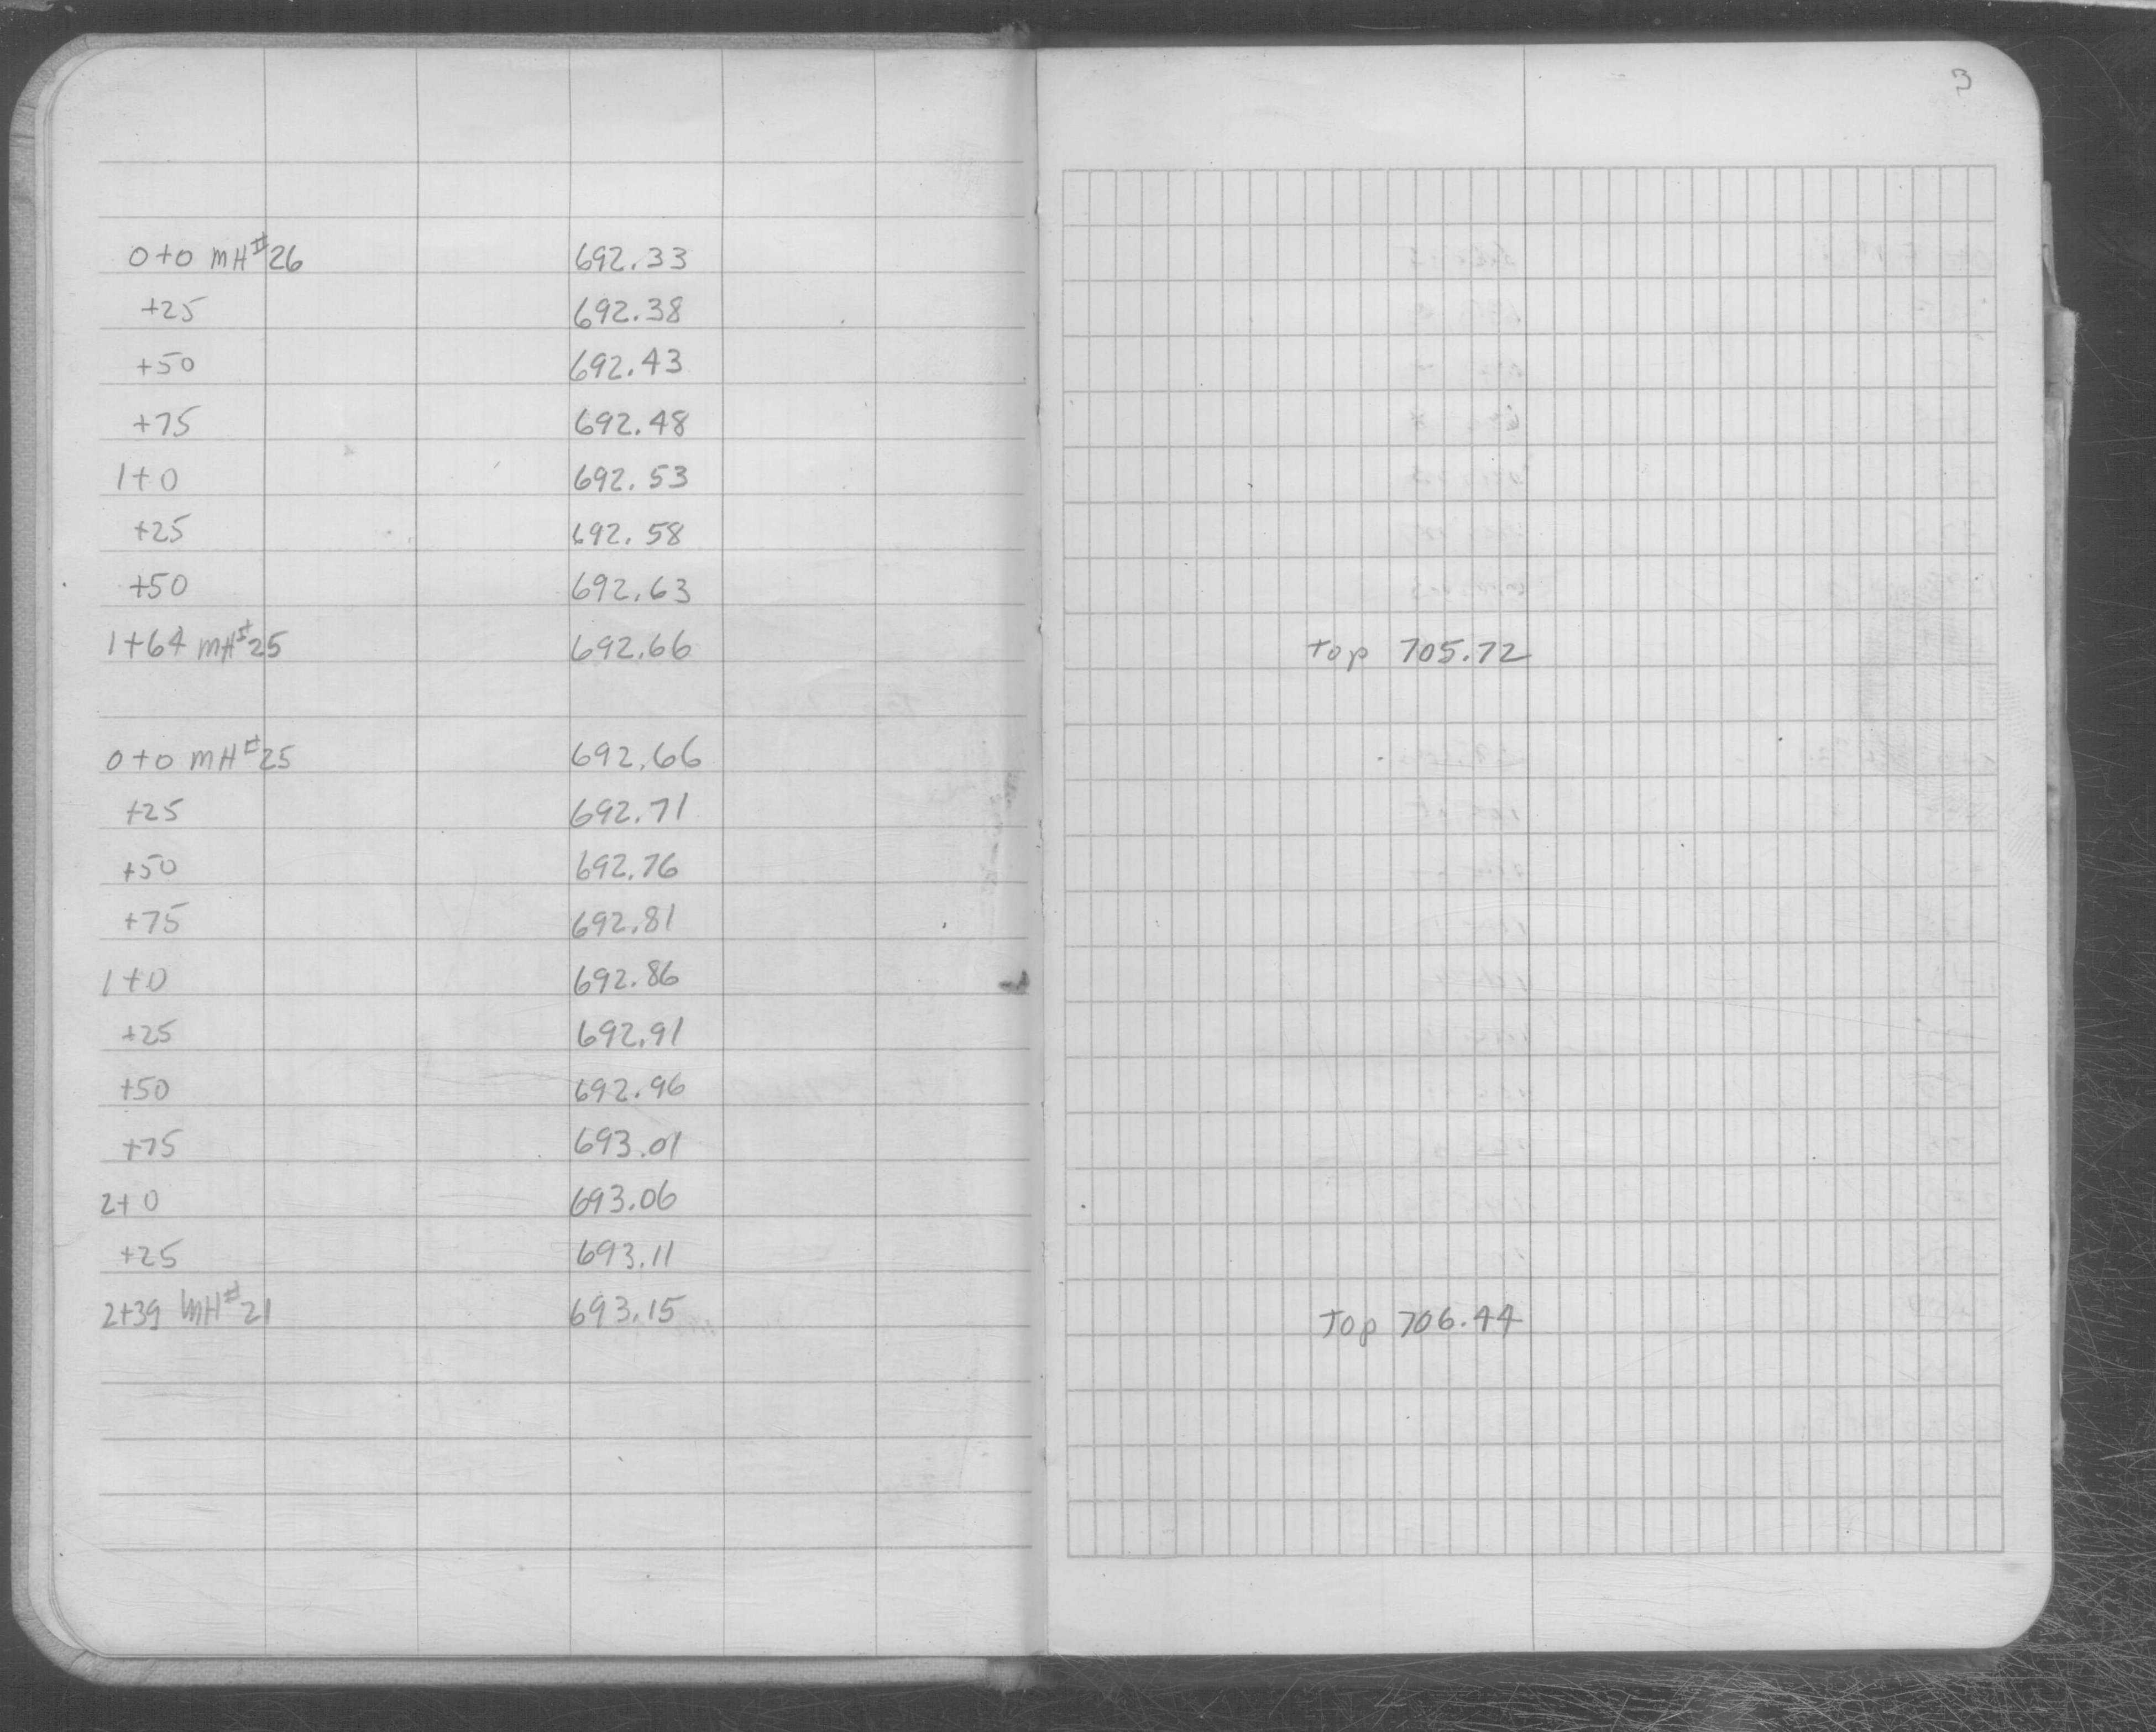 3
0+0 MH#26 692.33
+25 692.38
+50 692.43
+75 692.48
1+0 692.53
+25 692.58
+50 692.63
1+64 MH#25 692.66 top 705.72
0+0 MH#25 692.66
+25 692.71
+50 692.76
+75 692.81
1+0 692.86
+25 692.91
+50 692.96
+75 693.01
2+0 693.06
+25 693.11
2+39 MH#21 693.15 Top 706.44